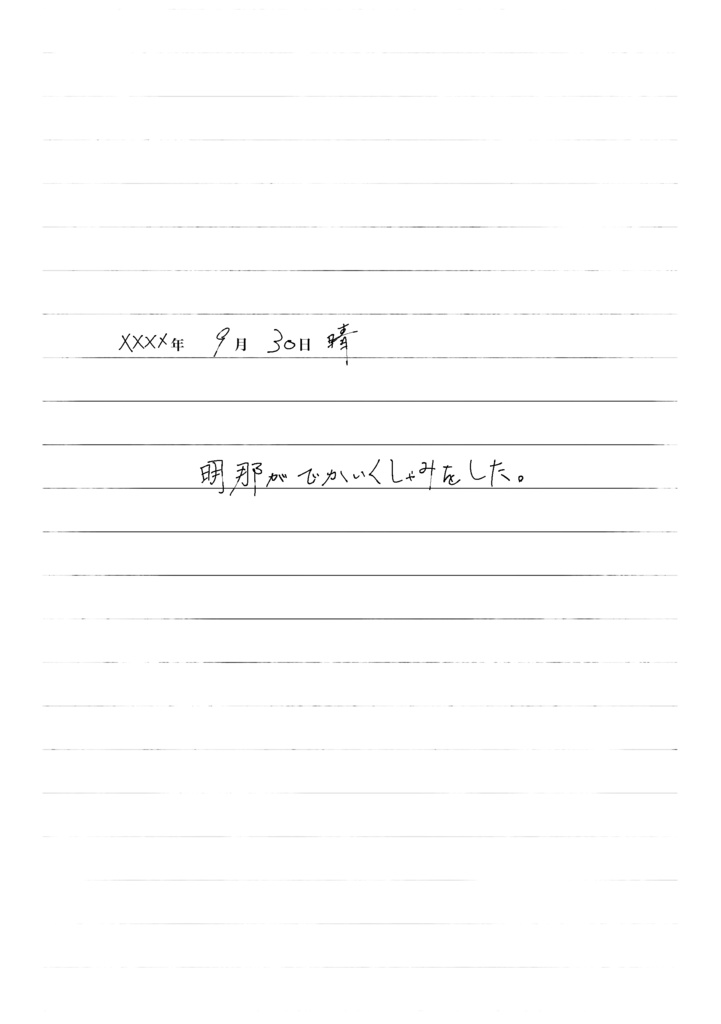 XXXX年 9月 30日 晴
明那がでかいくしゃみをした。